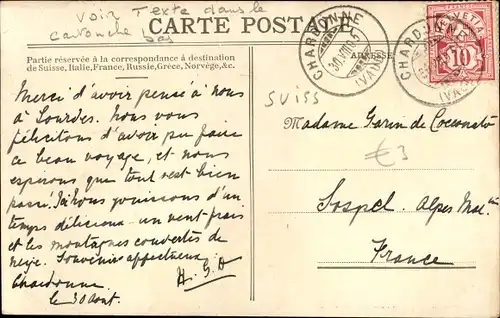 Voir Texte dans le
cartouche bas
CARTE POSTALE
Partie réservée à la correspondance à destination
de Suisse, Italie, France, Russie, Grèce, Norvège, &c.
ADRESSE
CHARDONNE
30.VIII
(VAUD)
CHARDONNE
(VAUD)
HELVETIA
10
SUISS
€3
Merci d'avoir pensé à nous
à Lourdes. Nous vous
félicitons d'avoir pu faire
ce beau voyage, et nous
espérons que tout s'est bien
passé. Ici nous jouissons d'un
temps délicieux - un vent frais
et les montagnes couvertes de
neige. Souvenirs affectueux
H.G.D
Chardonne
le 30 Aout.
Madame Garin de Cocconato
Sospel. Alpes Mar.
France